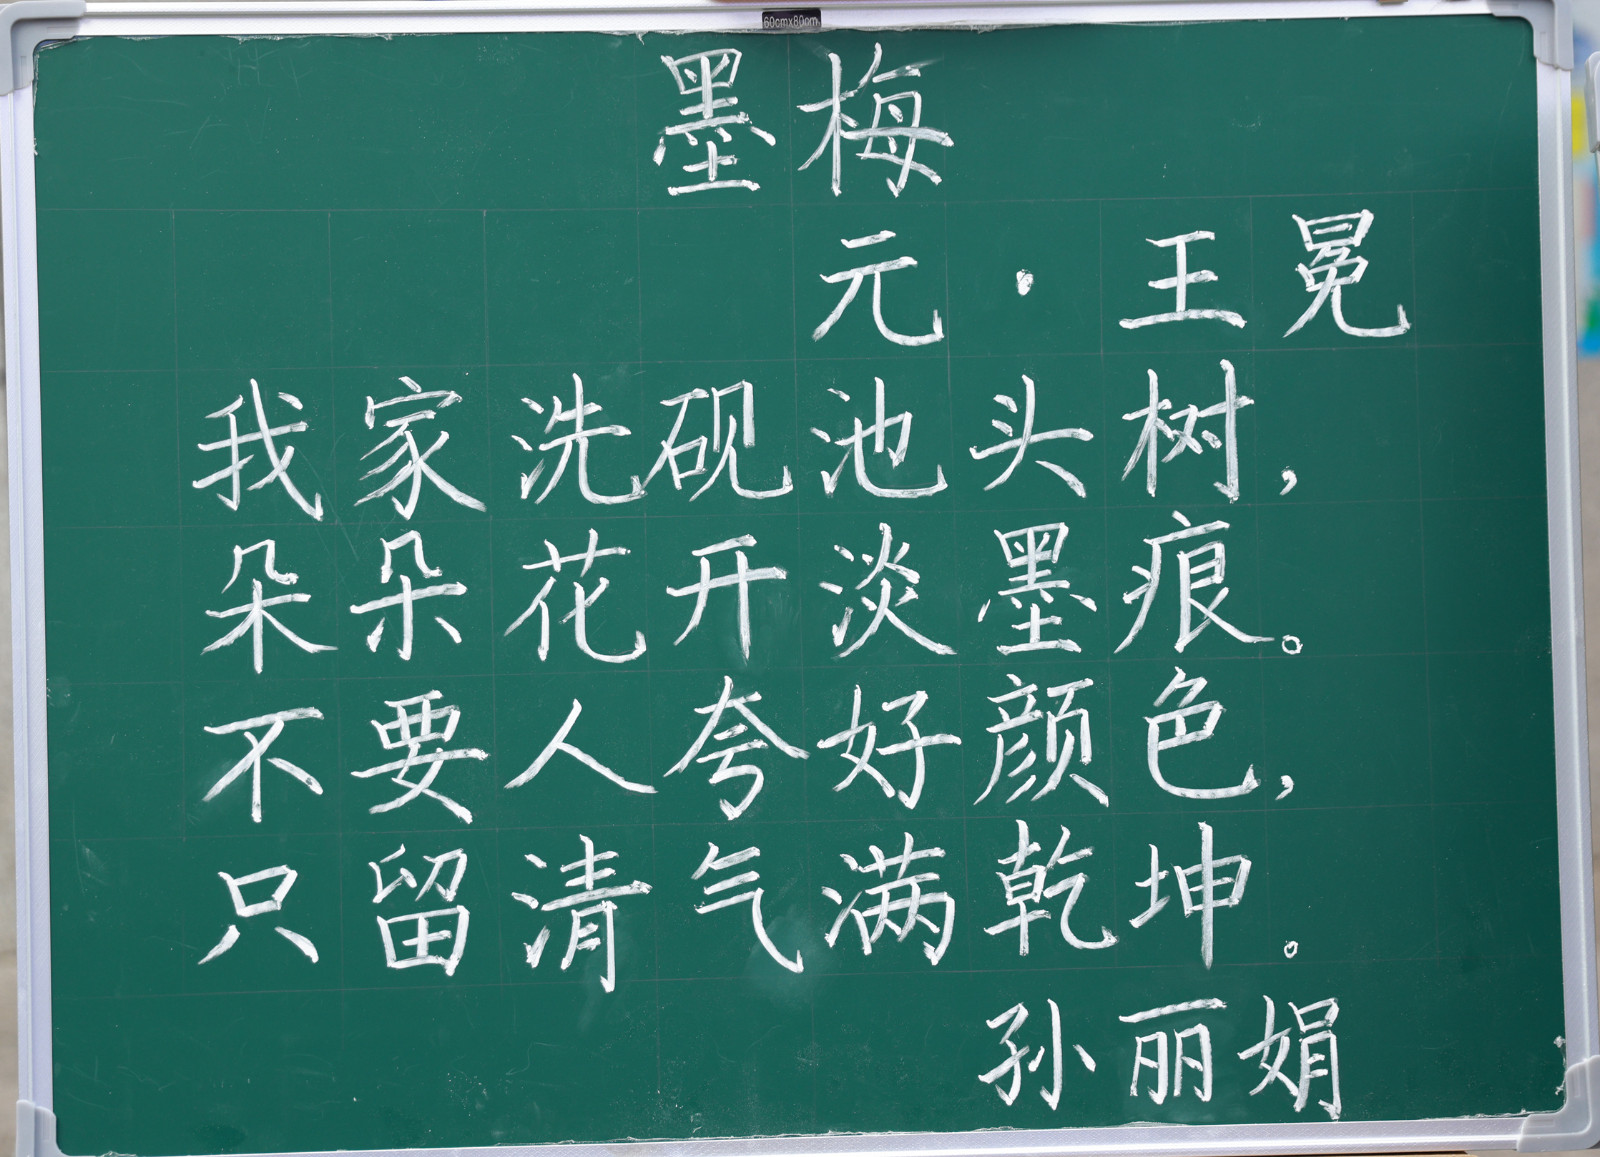 60cmx80cm
墨梅
元·王冕
我家洗砚池头树，
朵朵花开淡墨痕。
不要人夸好颜色，
只留清气满乾坤。
孙丽娟